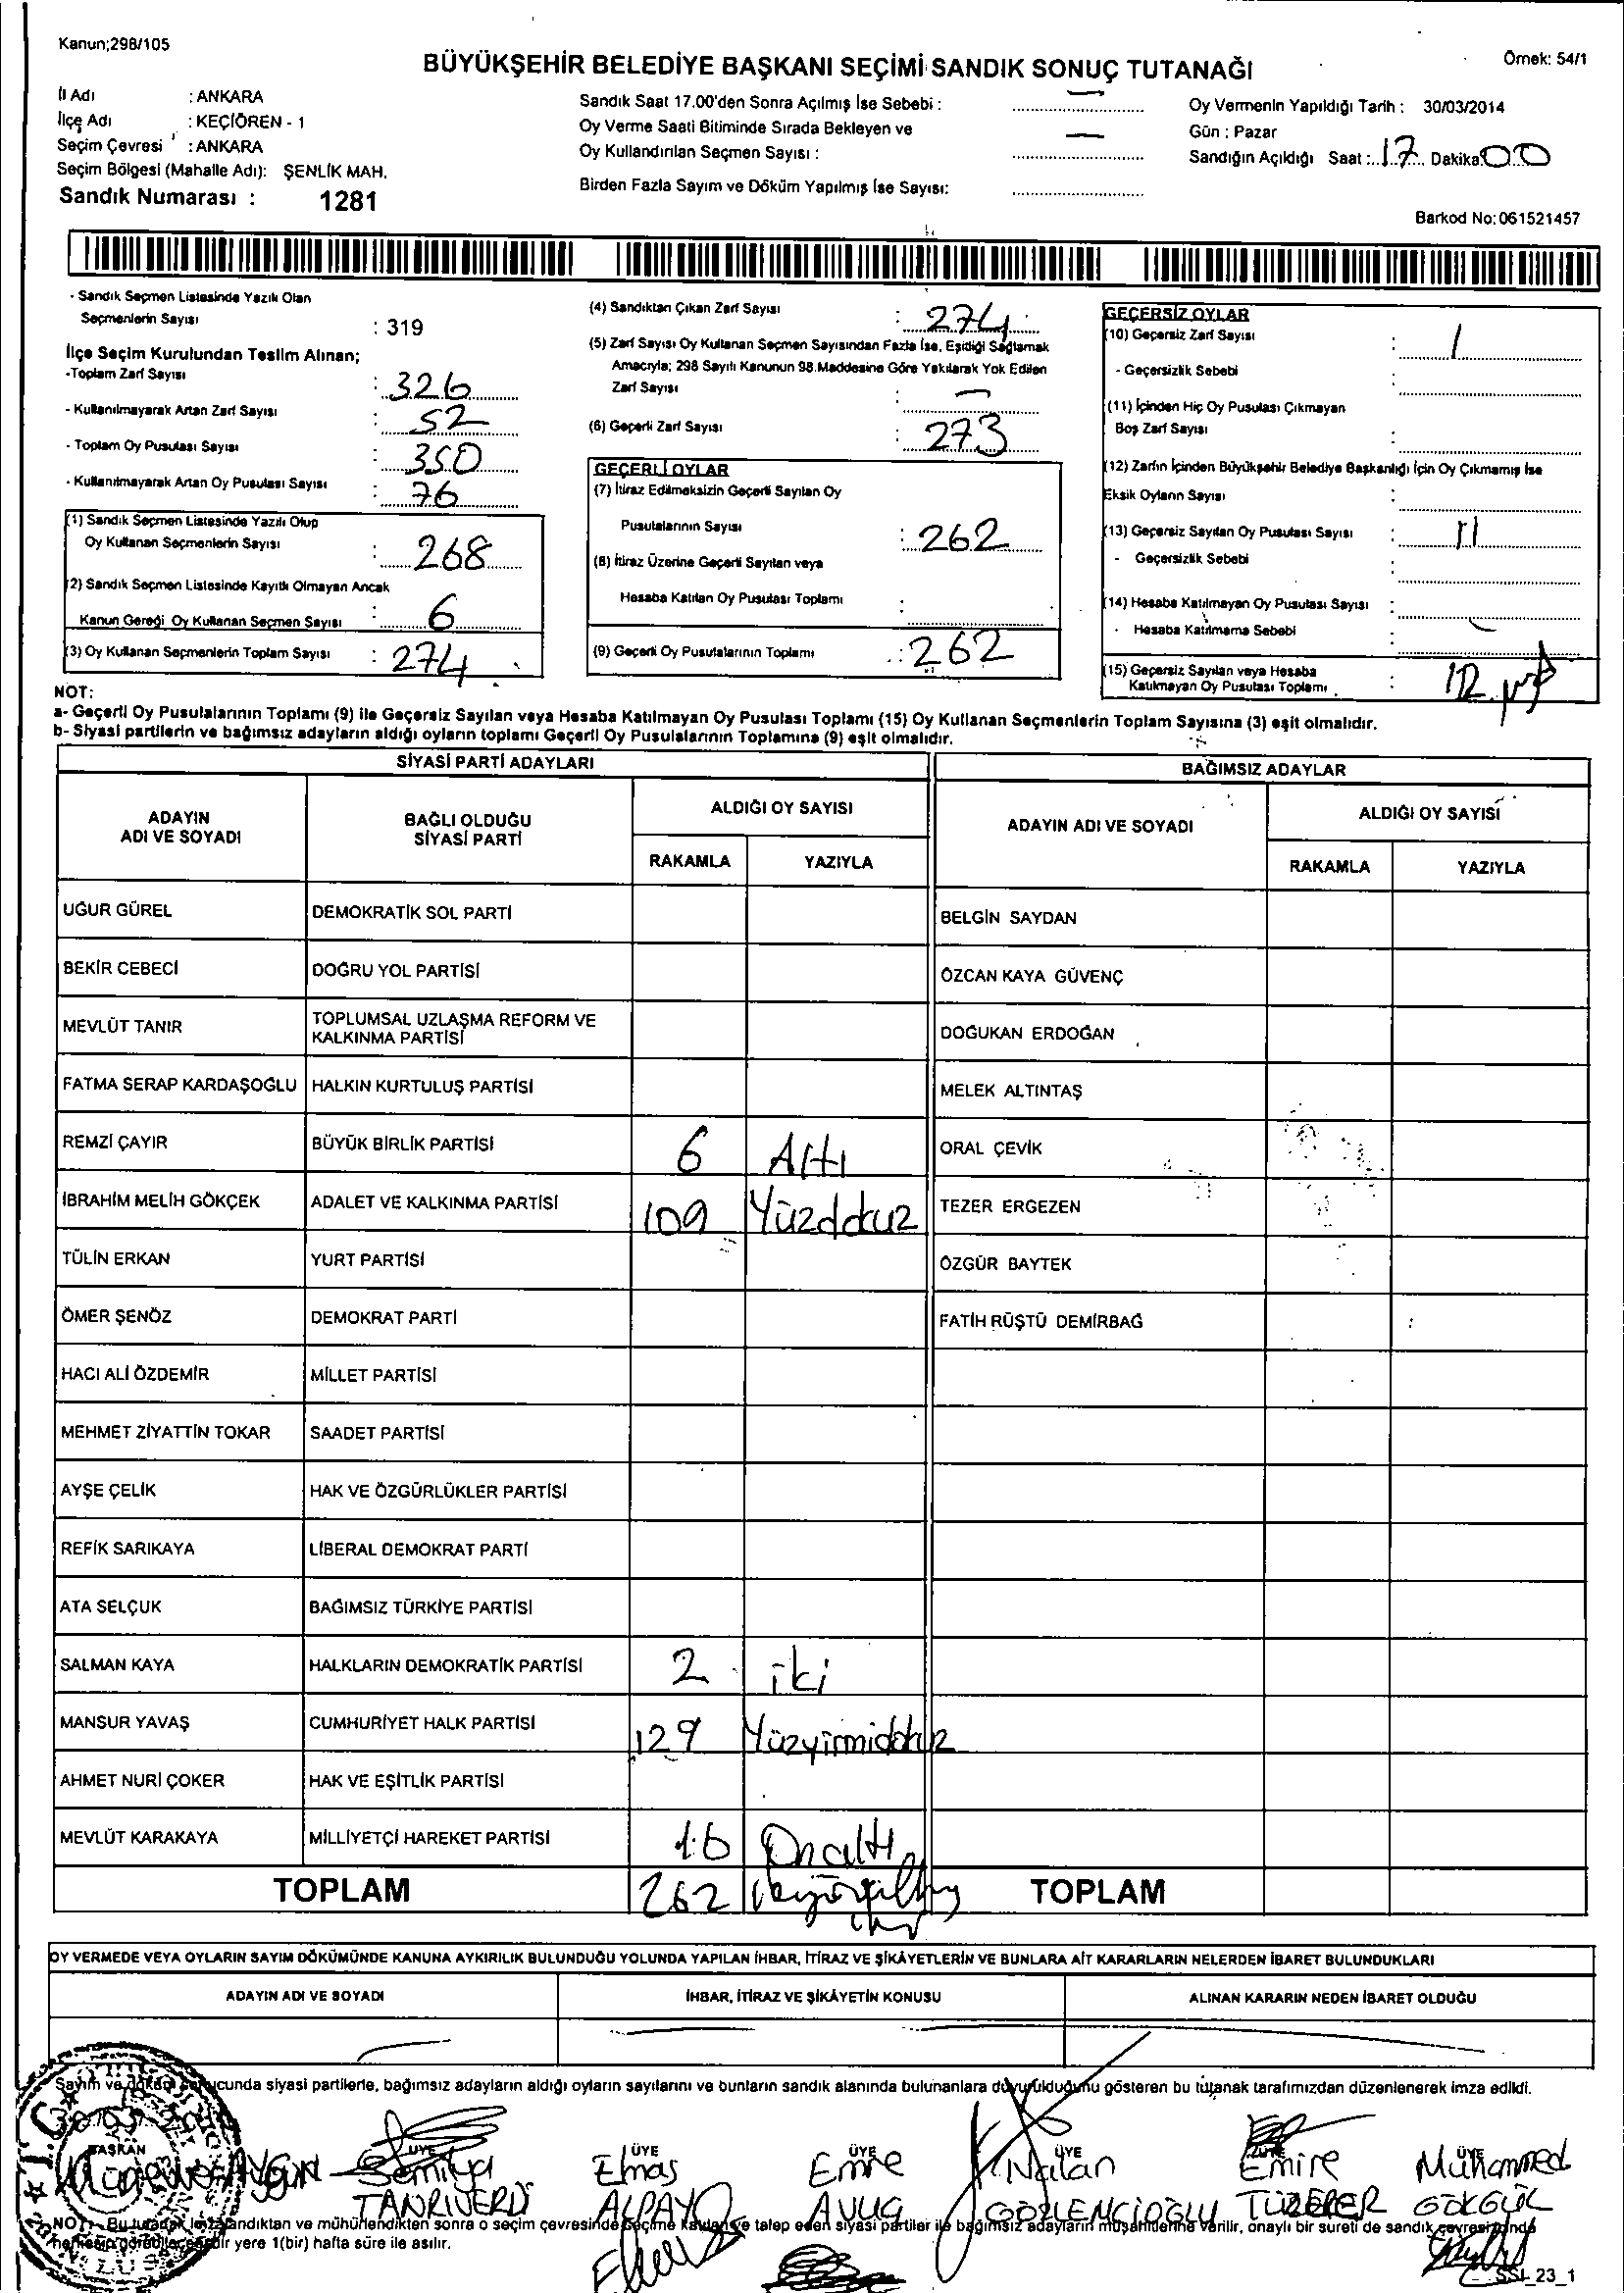 Kanun;298/105
BÜYÜKŞEHİR BELEDİYE BAŞKANI SEÇİMİ SANDIK SONUÇ TUTANAĞI
Örnek: 54/1
İl Adı : ANKARA
İlçe Adı : KEÇİÖREN - 1
Seçim Çevresi : ANKARA
Seçim Bölgesi (Mahalle Adı): ŞENLİK MAH.
Sandık Numarası : 1281
Sandık Saat 17.00'den Sonra Açılmış İse Sebebi : —
Oy Verme Saati Bitiminde Sırada Bekleyen ve
Oy Kullandırılan Seçmen Sayısı : —
Birden Fazla Sayım ve Döküm Yapılmış İse Sayısı:
Oy Vermenin Yapıldığı Tarih : 30/03/2014
Gün : Pazar
Sandığın Açıldığı Saat : 17 Dakika 00
Barkod No: 061521457
- Sandık Seçmen Listesinde Yazılı Olan
Seçmenlerin Sayısı : 319
İlçe Seçim Kurulundan Teslim Alınan;
-Toplam Zarf Sayısı : 326
- Kullanılmayarak Artan Zarf Sayısı : 52
- Toplam Oy Pusulası Sayısı : 350
- Kullanılmayarak Artan Oy Pusulası Sayısı : 76
(1) Sandık Seçmen Listesinde Yazılı Olup
Oy Kullanan Seçmenlerin Sayısı : 268
(2) Sandık Seçmen Listesinde Kayıtlı Olmayan Ancak
Kanun Gereği Oy Kullanan Seçmen Sayısı : 6
(3) Oy Kullanan Seçmenlerin Toplam Sayısı : 274
(4) Sandıktan Çıkan Zarf Sayısı : 274
(5) Zarf Sayısı Oy Kullanan Seçmen Sayısından Fazla İse, Eşitliği Sağlamak
Amacıyla; 298 Sayılı Kanunun 98.Maddesine Göre Yakılarak Yok Edilen
Zarf Sayısı : —
(6) Geçerli Zarf Sayısı : 273
GEÇERLİ OYLAR
(7) İtiraz Edilmeksizin Geçerli Sayılan Oy
Pusulalarının Sayısı : 262
(8) İtiraz Üzerine Geçerli Sayılan veya
Hesaba Katılan Oy Pusulası Toplamı :
(9) Geçerli Oy Pusulalarının Toplamı : 262
GEÇERSİZ OYLAR
(10) Geçersiz Zarf Sayısı : 1
- Geçersizlik Sebebi :
(11) İçinden Hiç Oy Pusulası Çıkmayan
Boş Zarf Sayısı :
(12) Zarfın İçinden Büyükşehir Belediye Başkanlığı İçin Oy Çıkmamış İse
Eksik Oyların Sayısı :
(13) Geçersiz Sayılan Oy Pusulası Sayısı : 11
- Geçersizlik Sebebi :
(14) Hesaba Katılmayan Oy Pusulası Sayısı : —
- Hesaba Katılmama Sebebi :
(15) Geçersiz Sayılan veya Hesaba
Katılmayan Oy Pusulası Toplamı : 12
NOT:
a- Geçerli Oy Pusulalarının Toplamı (9) ile Geçersiz Sayılan veya Hesaba Katılmayan Oy Pusulası Toplamı (15) Oy Kullanan Seçmenlerin Toplam Sayısına (3) eşit olmalıdır.
b- Siyasi partilerin ve bağımsız adayların aldığı oyların toplamı Geçerli Oy Pusulalarının Toplamına (9) eşit olmalıdır.
SİYASİ PARTİ ADAYLARI
BAĞIMSIZ ADAYLAR
ADAYIN ADI VE SOYADI
BAĞLI OLDUĞU SİYASİ PARTİ
ALDIĞI OY SAYISI
RAKAMLA YAZIYLA
ADAYIN ADI VE SOYADI
ALDIĞI OY SAYISI
RAKAMLA YAZIYLA
UĞUR GÜREL DEMOKRATİK SOL PARTİ BELGİN SAYDAN
BEKİR CEBECİ DOĞRU YOL PARTİSİ ÖZCAN KAYA GÜVENÇ
MEVLÜT TANIR TOPLUMSAL UZLAŞMA REFORM VE KALKINMA PARTİSİ DOĞUKAN ERDOĞAN
FATMA SERAP KARDAŞOĞLU HALKIN KURTULUŞ PARTİSİ MELEK ALTINTAŞ
REMZİ ÇAYIR BÜYÜK BİRLİK PARTİSİ 6 Altı ORAL ÇEVİK
İBRAHİM MELİH GÖKÇEK ADALET VE KALKINMA PARTİSİ 109 Yüzdokuz TEZER ERGEZEN
TÜLİN ERKAN YURT PARTİSİ ÖZGÜR BAYTEK
ÖMER ŞENÖZ DEMOKRAT PARTİ FATİH RÜŞTÜ DEMİRBAĞ
HACI ALİ ÖZDEMİR MİLLET PARTİSİ
MEHMET ZİYATTİN TOKAR SAADET PARTİSİ
AYŞE ÇELİK HAK VE ÖZGÜRLÜKLER PARTİSİ
REFİK SARIKAYA LİBERAL DEMOKRAT PARTİ
ATA SELÇUK BAĞIMSIZ TÜRKİYE PARTİSİ
SALMAN KAYA HALKLARIN DEMOKRATİK PARTİSİ 2 iki
MANSUR YAVAŞ CUMHURİYET HALK PARTİSİ 129 Yüzyirmidokuz
AHMET NURİ ÇOKER HAK VE EŞİTLİK PARTİSİ
MEVLÜT KARAKAYA MİLLİYETÇİ HAREKET PARTİSİ 16 Onaltı
TOPLAM 262 ikiyüzaltmış iki TOPLAM
OY VERMEDE VEYA OYLARIN SAYIM DÖKÜMÜNDE KANUNA AYKIRILIK BULUNDUĞU YOLUNDA YAPILAN İHBAR, İTİRAZ VE ŞİKÂYETLERİN VE BUNLARA AİT KARARLARIN NELERDEN İBARET BULUNDUKLARI
ADAYIN ADI VE SOYADI İHBAR, İTİRAZ VE ŞİKÂYETİN KONUSU ALINAN KARARIN NEDEN İBARET OLDUĞU
Sayım ve döküm sonucunda siyasi partilerle, bağımsız adayların aldığı oyların sayılarını ve bunların sandık alanında bulunanlara duyurulduğunu gösteren bu tutanak tarafımızdan düzenlenerek imza edildi.
BAŞKAN ÜYE ÜYE ÜYE ÜYE ÜYE ÜYE
AYGÜN Semiha Elmas Emre Nalan Emire Muhammed
TANRIVERDİ ALPAY AVUG GÖZLENCİOĞLU TÜZERER GÖKGÜL
NOT: Bu tutanak imzalandıktan ve mühürlendikten sonra o seçim çevresinde seçime katılan ve talep eden siyasi partiler ile bağımsız adayların müşahitlerine verilir, onaylı bir sureti de sandık çevresinde
herkesin görebileceği bir yere 1(bir) hafta süre ile asılır.
SSI_23_1